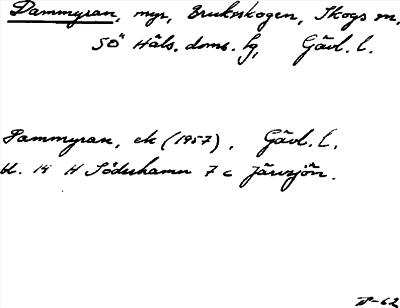 Dammyran, myr, Bruksskogen, Skogs sn,
SÖ Häls. doms. lg, Gävl. l.
Dammyran, ek (1957), Gävl. l.
bl. 14 H Söderhamn 7 c Järvsjön.
-62